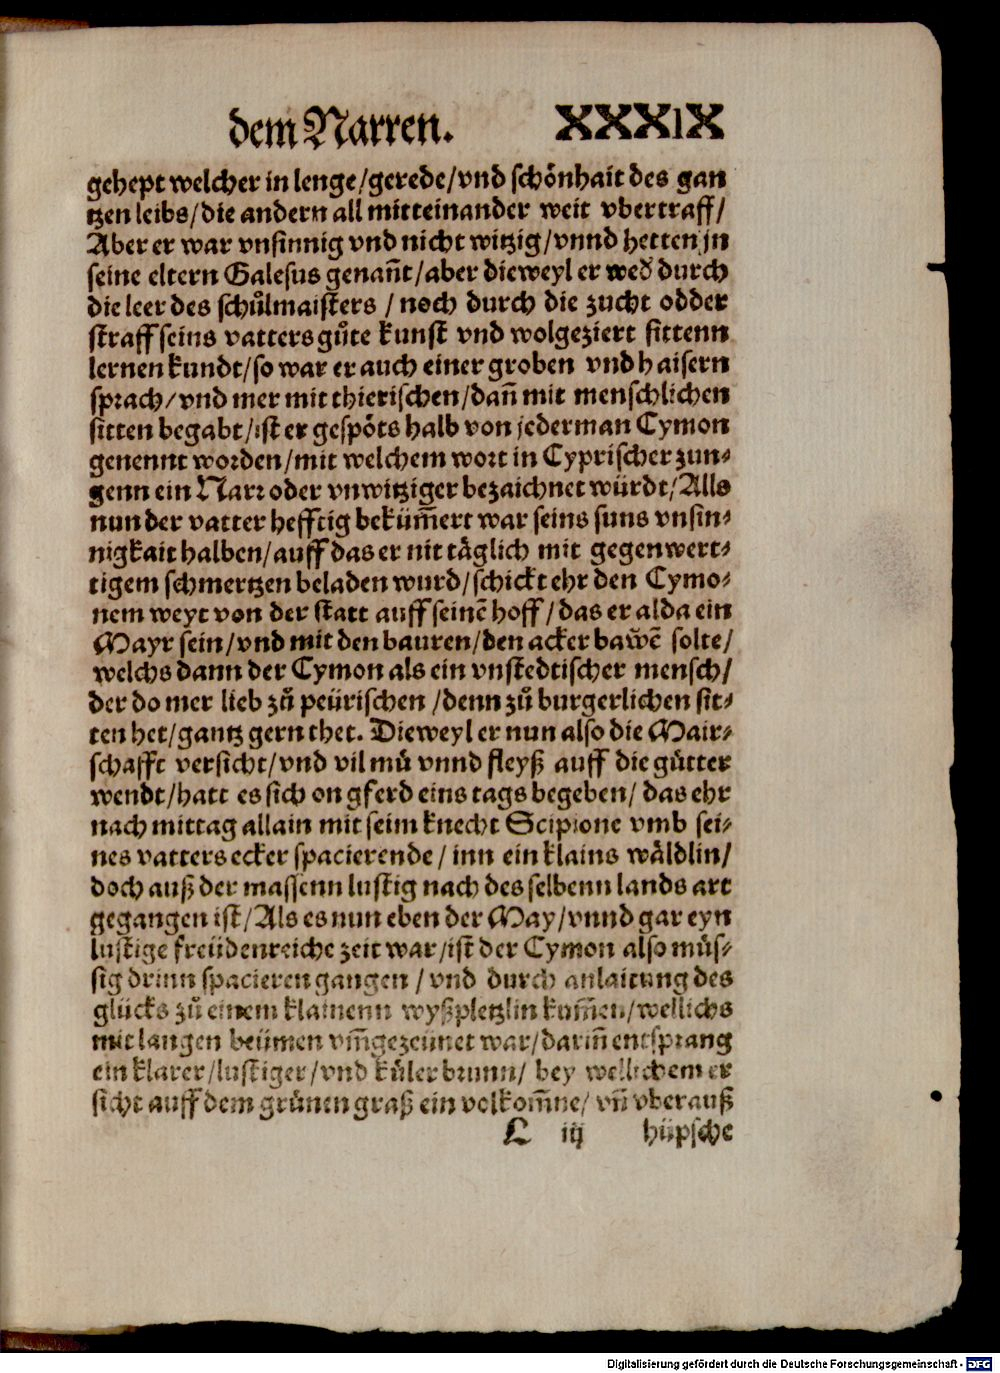 dem Narren. XXXIX
gehept welcher in lenge/gerede/vnd schönhait des gan
tzen leibs/die andern all mitteinander weit vbertraff/
Aber er war vnsinnig vnd nicht witzig/vnnd hetten jn
seine eltern Galesus genañt/aber dieweyl er wed̃ durch
die leer des schůlmaisters / noch durch die zucht odder
straff seins vatters gůte kunst vnd wolgeziert sittenn
lernen kundt/so war er auch einer groben vnd haisern
sprach/vnd mer mit thierischen/dañ mit menschlichen
sitten begabt/ist er gespöts halb von jederman Cymon
genennt worden/mit welchem wort in Cyprischer zun⸗
genn ein Narr oder vnwitziger bezaichnet würdt/Alls
nun der vatter hefftig beküm̃ert war seins suns vnsin⸗
nigkait halben/auff das er nit täglich mit gegenwert⸗
tigem schmertzen beladen wurd/schickt ehr den Cymo⸗
nem weyt von der statt auff seinē hoff/das er alda ein
Mayr sein/vnd mit den bauren/den acker baw̃ē solte/
welchs dann der Cymon als ein vnstedtischer mensch/
der do mer lieb zů peürischen /denn zů burgerlichen sit⸗
ten het/gantz gern thet. Dieweyl er nun also die Mair⸗
schafft versicht/vnd vil mů vnnd fleyß auff die gütter
wendt/hatt es sich on gferd eins tags begeben/ das ehr
nach mittag allain mit seim knecht Scipione vmb sei⸗
nes vatters ecker spacierende/ inn ein klains wäldlin/
doch auß der massenn lustig nach des selbenn lands art
gegangen ist/Als es nun eben der May/vnnd gar eyn
lustige freüdenreiche zeit war/ist der Cymon also müs⸗
sig drinn spacieren gangen / vnd durch anlaitung des
glücks zů einem klainenn wyßpletzlin kom̃en/wellichs
mit langen beümen vm̃gezeünet war/darin̄ entsprang
ein klarer/lustiger/vnd küler brunn/ bey wellichem er
sicht auff dem grünen graß ein volkom̃ne/ vñ vberauß
L iij hüpsche
Digitalisierung gefördert durch die Deutsche Forschungsgemeinschaft - DFG